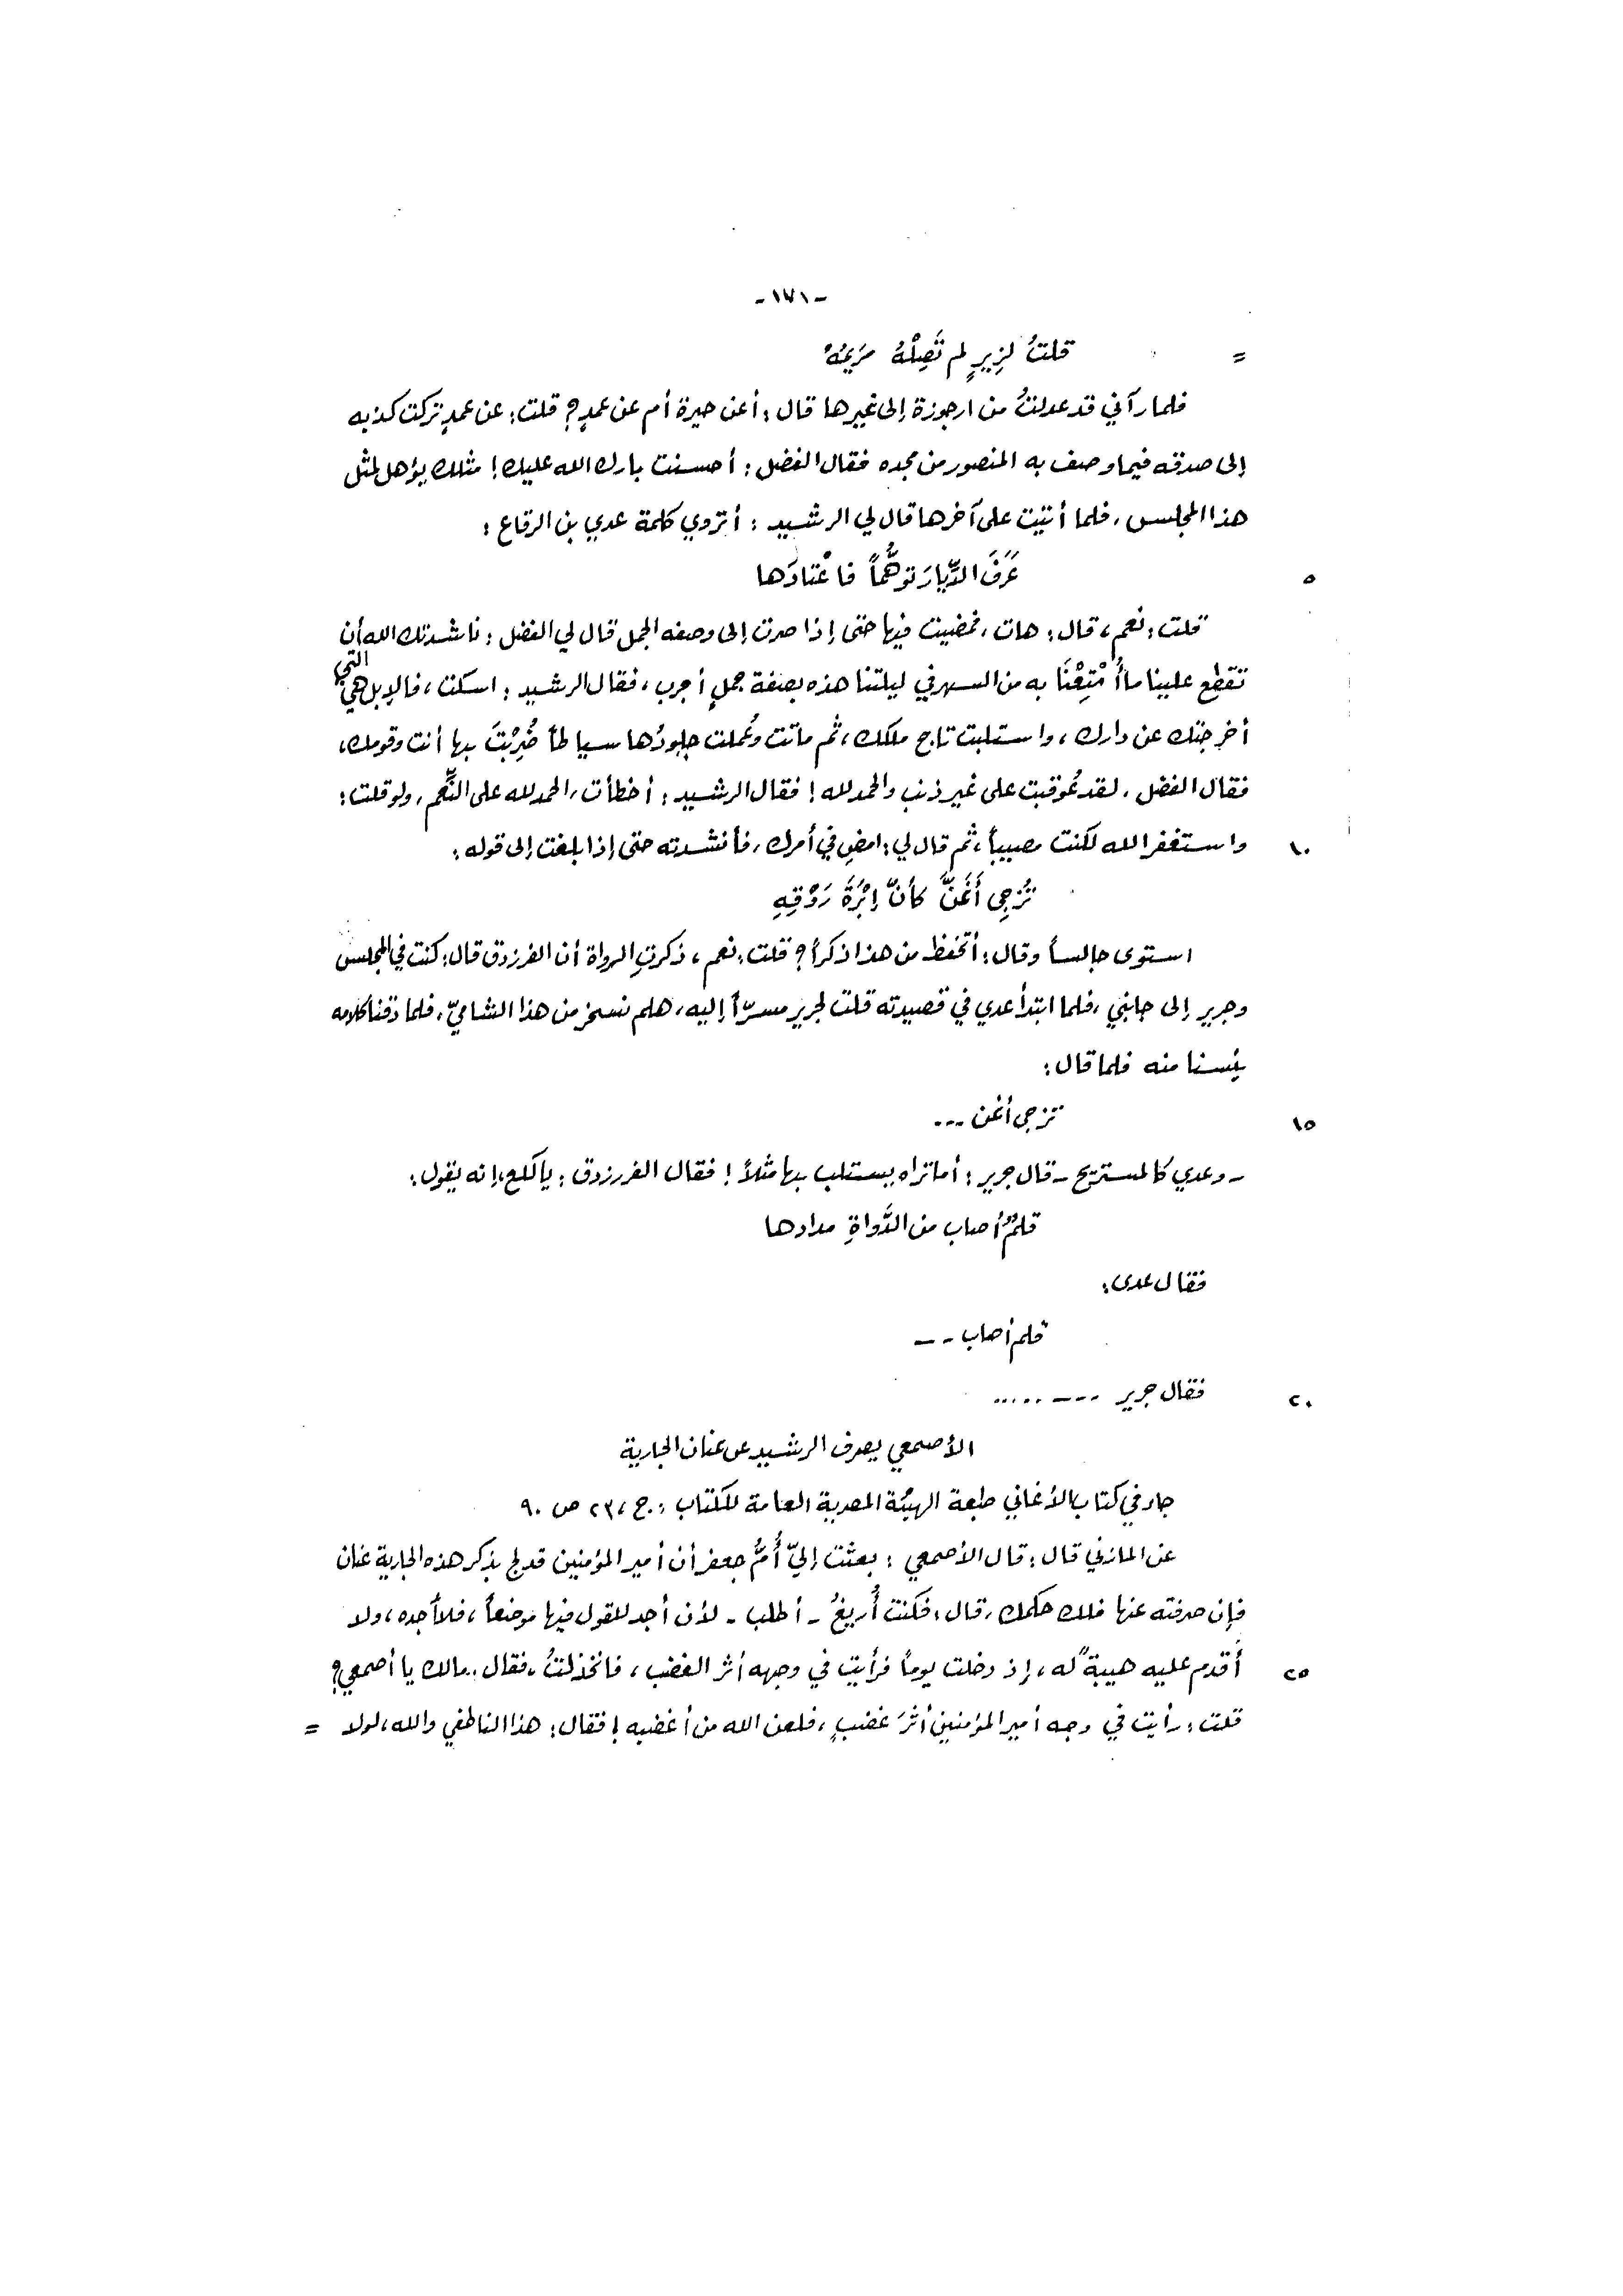 -١٧١-
= قلتُ لِزِيرٍ لم تَصِلْهُ مَريمُهْ
فلما رآني قد عدلتُ من ارجوزة إلى غيرها قال : أعن حيرة أم عن عمدٍ ؟ قلت : عن عمدٍ تركت كذبه
إلى صدقه فيما وصف به المنصور من مجده فقال الفضل : أحسنت بارك الله عليك ! مثلك يؤهل لمثل
هذا المجلس ، فلما أتيت على آخرها قال لي الرشيد : أتروي كلمة عدي بن الرقاع :
عَرَفَ الدِّيارَ توهُّماً فاعْتادَها ٥
قلت : نعم ، قال : هات ، فمضيت فيها حتى إذا صرت إلى وصفه الجمل قال لي الفضل : ناشدتك الله أن
تقطع علينا ما أُمْتِعْنَا به من السهر في ليلتنا هذه بصفة جملٍ أجرب ، فقال الرشيد : اسكت ، فالإبل هي التي
أخرجتك عن دارك ، واستلبت تاج ملكك ، ثم ماتت وعُملت جلودُها سياطاً ضُرِبْتَ بها أنت وقومك ،
فقال الفضل . لقد عُوقبت على غير ذنب والحمد لله ! فقال الرشيد : أخطأت ، الحمد لله على النِّعم ، ولو قلت :
واستغفر الله لكنت مصيباً ، ثم قال لي : امضِ في أمرك ، فأنشدته حتى إذا بلغت إلى قوله : ١٠
تُزجِى أَغَنَّ كأنَّ إبْرَةَ رَوْقِهِ
استوى جالساً وقال : أتحفظ من هذا ذكراً ؟ قلت : نعم ، ذكرتِ الرواة أن الفرزدق قال : كنت في المجلس
وجرير إلى جانبي ، فلما ابتدأ عدي في قصيدته قلت لجرير مسرّاً إليه ، هلم نسخر من هذا الشاميّ ، فلما ذقنا كلامه
يئسنا منه فلما قال :
تزجى أغن --- ١٥
- وعدي كالمستريح - قال جرير : أما تراه يستلب بها مثلاً ! فقال الفرزدق : يا لكع ، إنه يقول :
قلمٌ أصاب من الدَّواةِ مدادها
فقال عدى :
قلم أصاب - -
فقال جرير --- ..... ٢٠
الأصمعي يصرف الرشيد عن عنان الجارية
جاء في كتاب الأغاني طبعة الهيئة المصرية العامة للكتاب : ج ، ٢٣ ص ٩٠
عن المازني قال : قال الأصمعي : بعثت إليّ أُمُّ جعفر أن أمير المؤمنين قد لج بذكر هذه الجارية عنان
فإن صرفته عنها فلك حكمك ، قال : فكنت أُريغُ - أطلب - لأن أجد للقول فيها موضعاً ، فلا أجده ، ولا
أقدم عليه هيبةً له ، إذ دخلت يوماً فرأيت في وجهه أثر الغضب ، فانخذلتُ ، فقال : مالك يا أصمعي ؟ ٢٥
قلت : رأيت في وجه أمير المؤمنين أثرَ غضبٍ ، فلعن الله من أغضبه ! فقال : هذا الناطفي والله ، لولا =